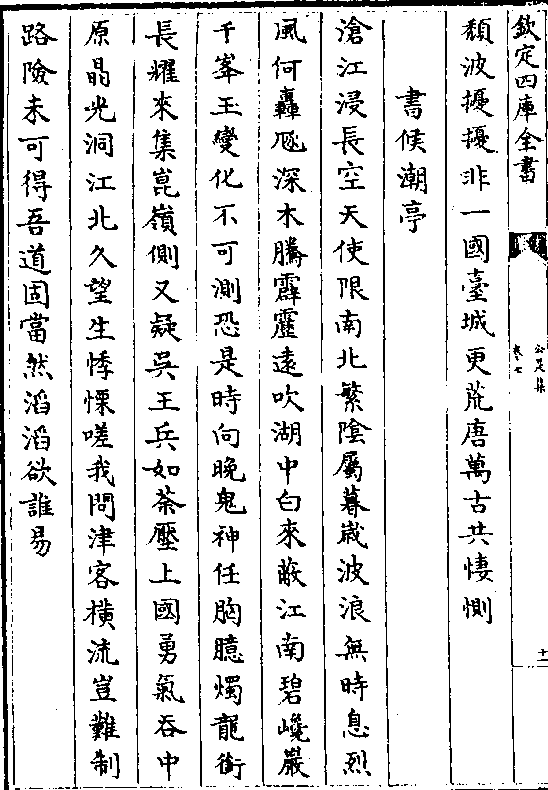 欽定四庫全書
公是集
卷七
十一
頹波擾擾非一國臺城更荒唐萬古共悽惻
書候潮亭
滄江浸長空天使限南北繁陰屬暮歲波浪無時息烈
風何轟隱深木騰霹靂遠吹湖中白來蔽江南碧巉巖
千峯玉變化不可測恐是時向晚鬼神任胸臆燭龍銜
長耀來集崑嶺側又疑吳王兵如荼壓上國勇氣吞中
原晶光洞江北久望生悸慄嗟我問津客橫流豈難制
路險未可得吾道固當然滔滔欲誰易